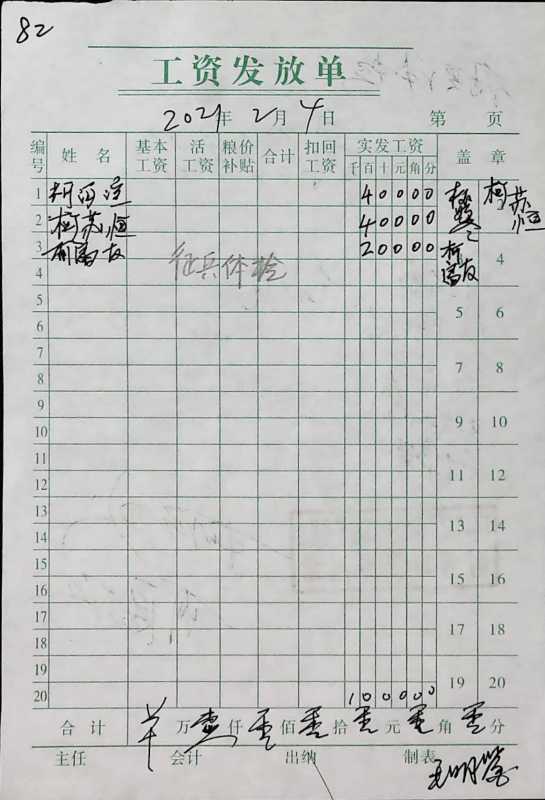 82
工资发放单
2021年2月4日 第 页
编号 姓名 基本工资 活工资 粮价补贴 合计 扣回工资 实发工资 盖章
千百十元角分
1 40000 柯苏恒
2 柯苏恒 40000
3 柯富友 20000 柯富友
征兵体检
4 4
5 5 6
6
7 7 8
8
9 9 10
10
11 11 12
12
13 13 14
14
15 15 16
16
17 17 18
18
19 19 20
20 100000
合计 万壹仟零佰零拾零元零角零分
主任 会计 出纳 制表